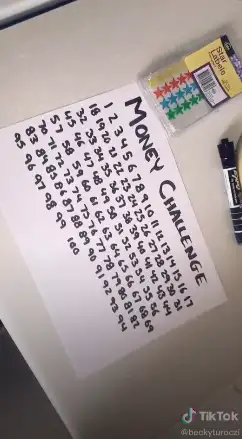 MONEY CHALLENGE
1 2 3 4 5 6 7 8 9 10 11 12 13 14 15 16 17
18 19 20 21 22 23 24 25 26 27 28 29 30 31
32 33 34 35 36 37 38 39 40 41 42 43 44
45 46 47 48 49 50 51 52 53 54 55 56
57 58 59 60 61 62 63 64 65 66 67 68 69
70 71 72 73 74 75 76 77 78 79 80 81 82
83 84 85 86 87 88 89 90 91 92 93 94
95 96 97 98 99 100
Star
Labels
TikTok
@beckyturoczi